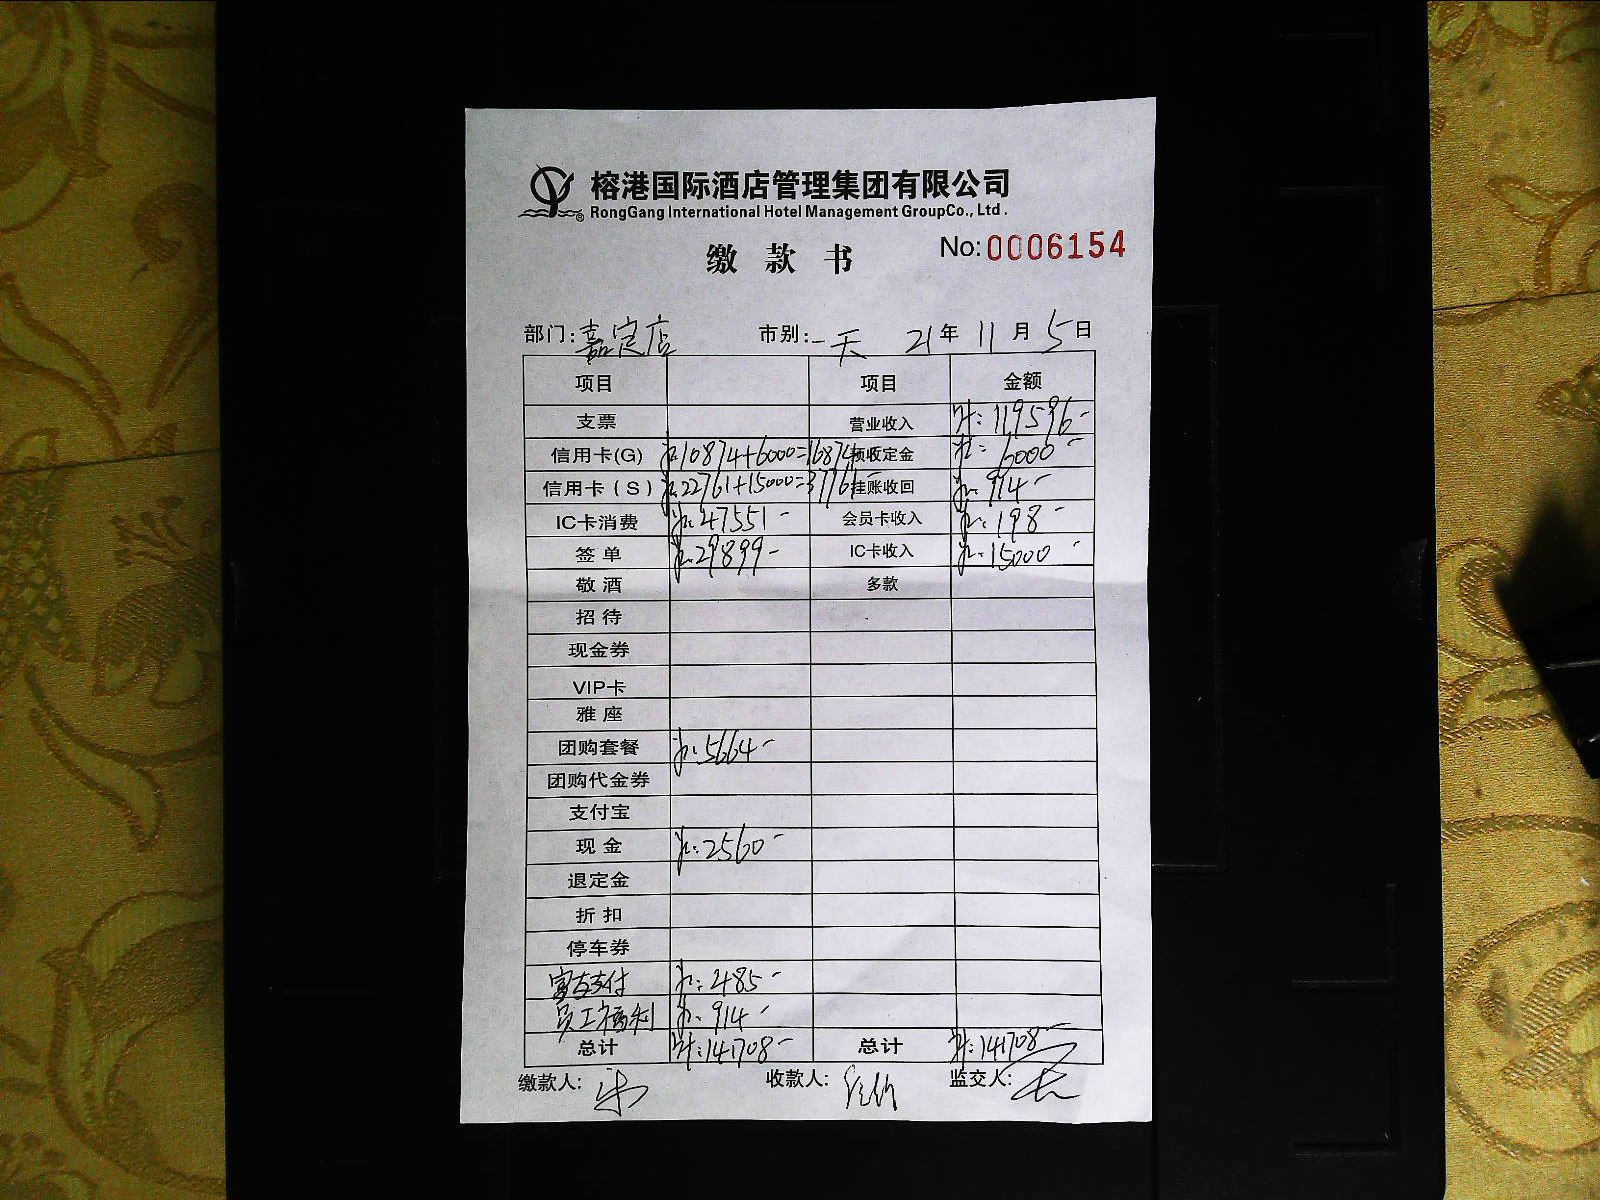 榕港国际酒店管理集团有限公司
RongGang International Hotel Management GroupCo., Ltd.
缴 款 书
No: 0006154
部门: 嘉定店 市别: 一天 21 年 11 月 5 日
项目 项目 金额
支票 营业收入 计: 119596-
信用卡(G) 10874+6000=16874 预收定金 6000-
信用卡(S) 22761+15000=37761 挂账收回 914-
IC卡消费 47551- 会员卡收入 198-
签 单 29899- IC卡收入 15000-
敬 酒 多款
招 待
现金券
VIP卡
雅 座
团购套餐 5664-
团购代金券
支付宝
现 金 2560-
退定金
折 扣
停车券
富友支付 485-
员工福利 914-
总计 计: 141708- 总计 计: 141708-
缴款人: 收款人: 监交人: